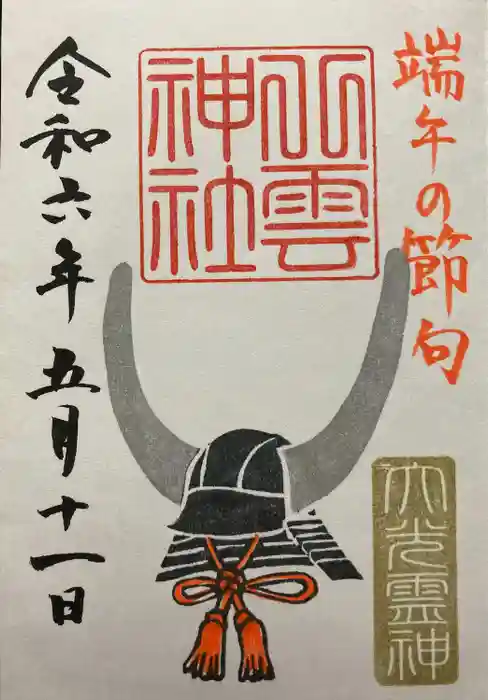 端午の節句
大光霊神
八雲
神社
令和六年 五月十一日